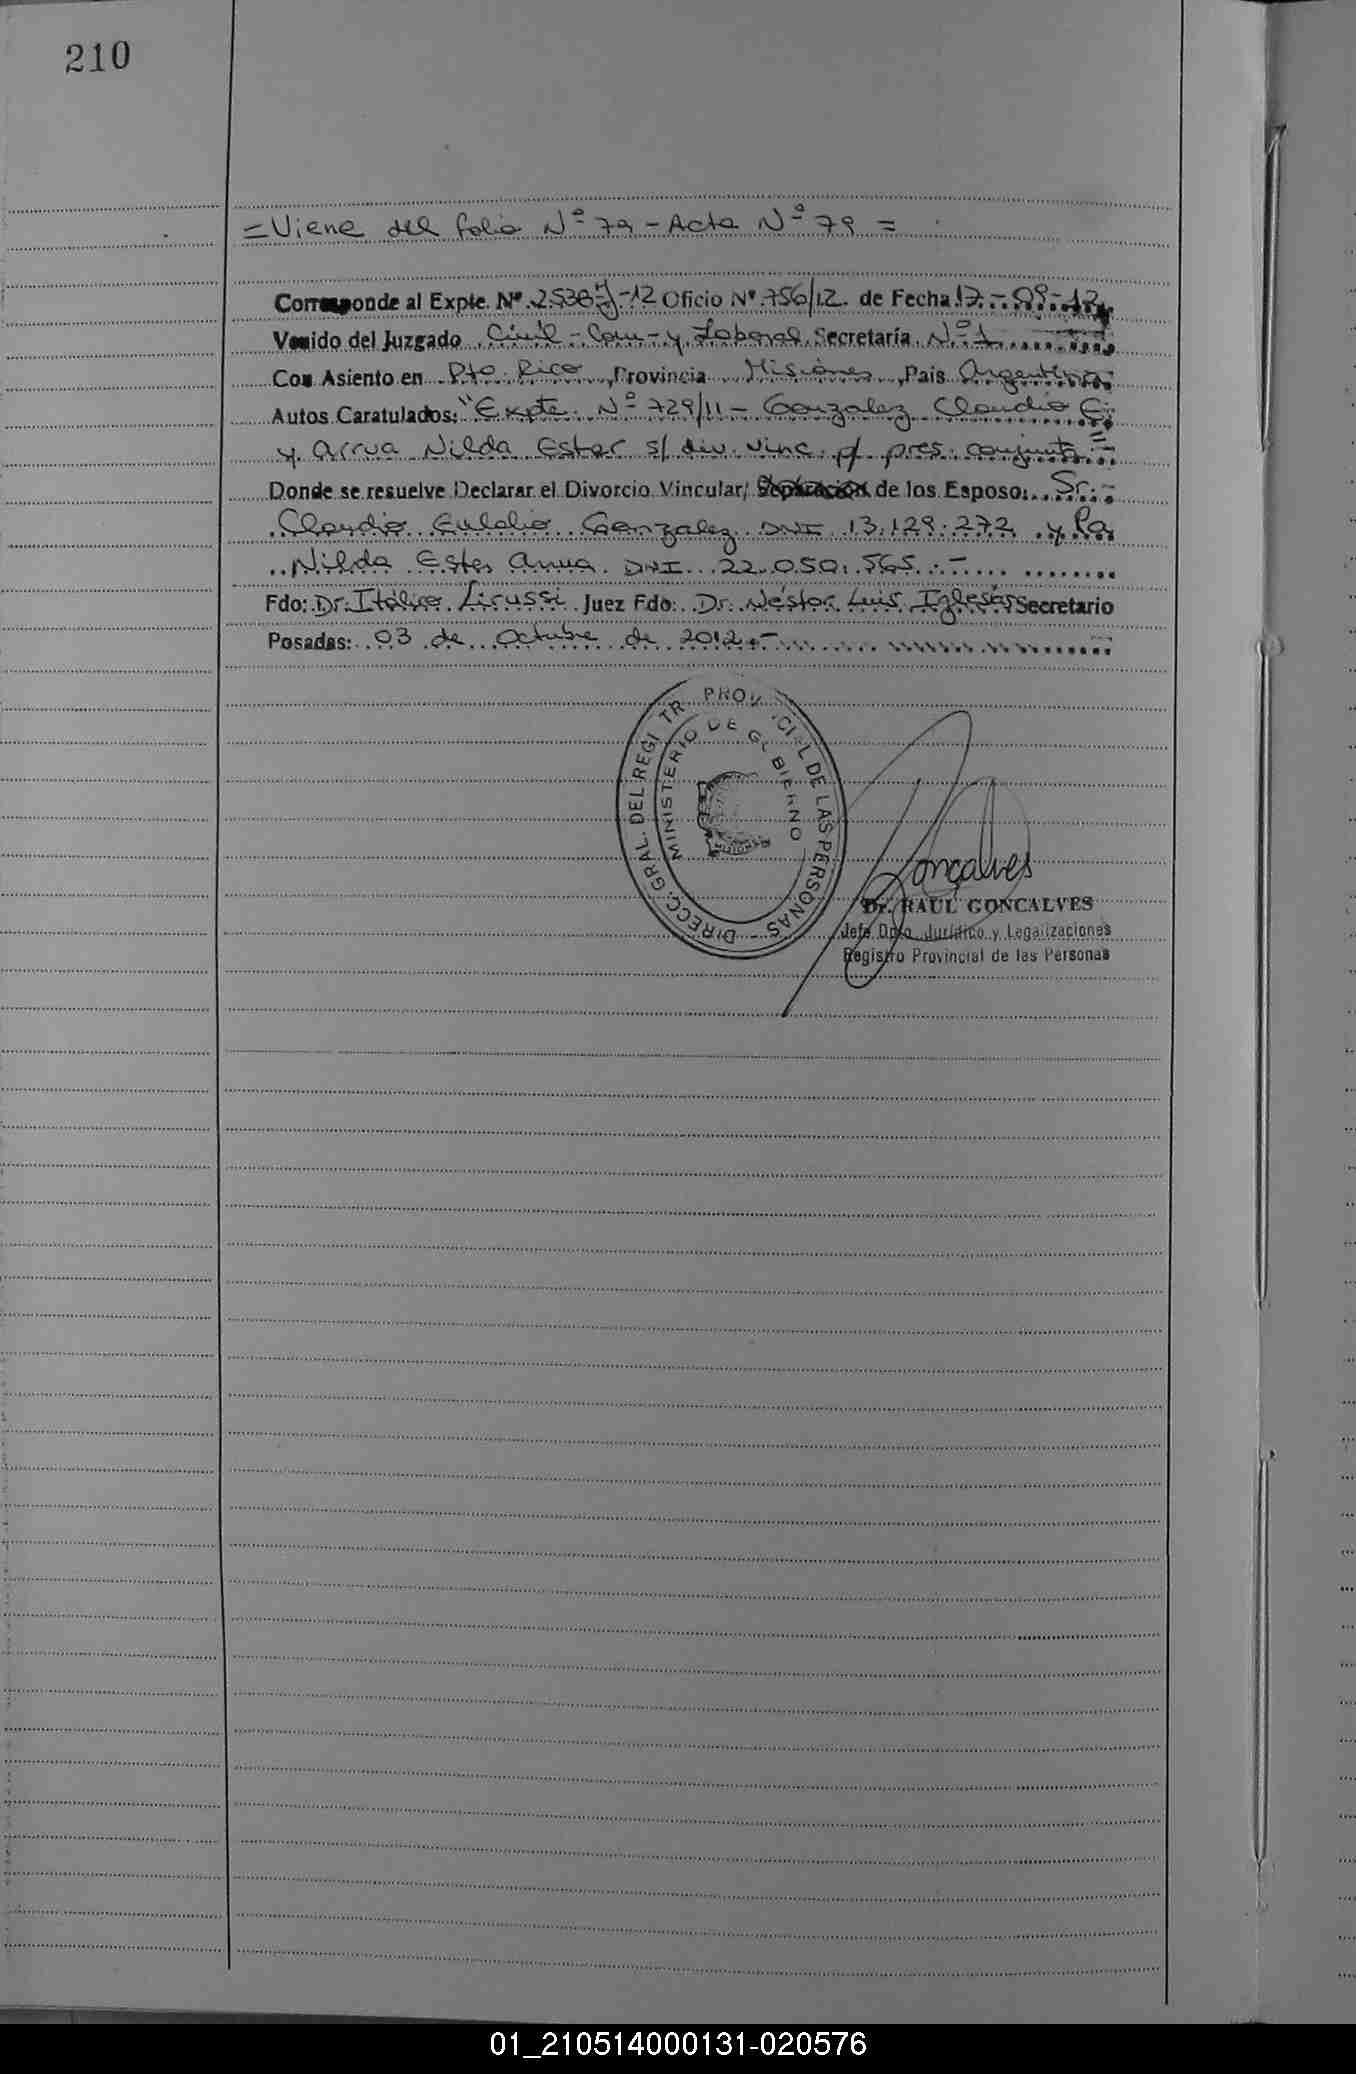 210
=Viene del folio Nº 79 - Acta Nº 79 =
Corresponde al Expte. Nº 2538-"J"-12 Oficio Nº 756/12 de Fecha 17-09-12
Venido del Juzgado Civil - Com - y Laboral Secretaría Nº 1
Con Asiento en Pto. Rico, Provincia Misiones, País Argentina
Autos Caratulados: "Expte. Nº 729/11 - Gonzalez Claudio E.
y Arrua Nilda Ester s/ div. vinc. p/ pres. conjunta"=
Donde se resuelve Declarar el Divorcio Vincular/ Separación de los Esposo: Sr. -
Claudio Eulalio Gonzalez DNI 13.129.272 y la
Nilda Ester Arrua DNI 22.050.565 -
Fdo: Dr. Itálico Lirussi Juez Fdo: Dr. Néstor Luis Iglesias Secretario
Posadas: 03 de Octubre de 2012.-
DIRECC. GRAL. DEL REGI TR PROV CIAL DE LAS PERSONAS -
MINISTERIO DE GOBIERNO
MISIONES
Gonçalves
Dr. RAUL GONCALVES
Jefe Dpto. Jurídico y Legalizaciones
Registro Provincial de las Personas
01_210514000131-020576